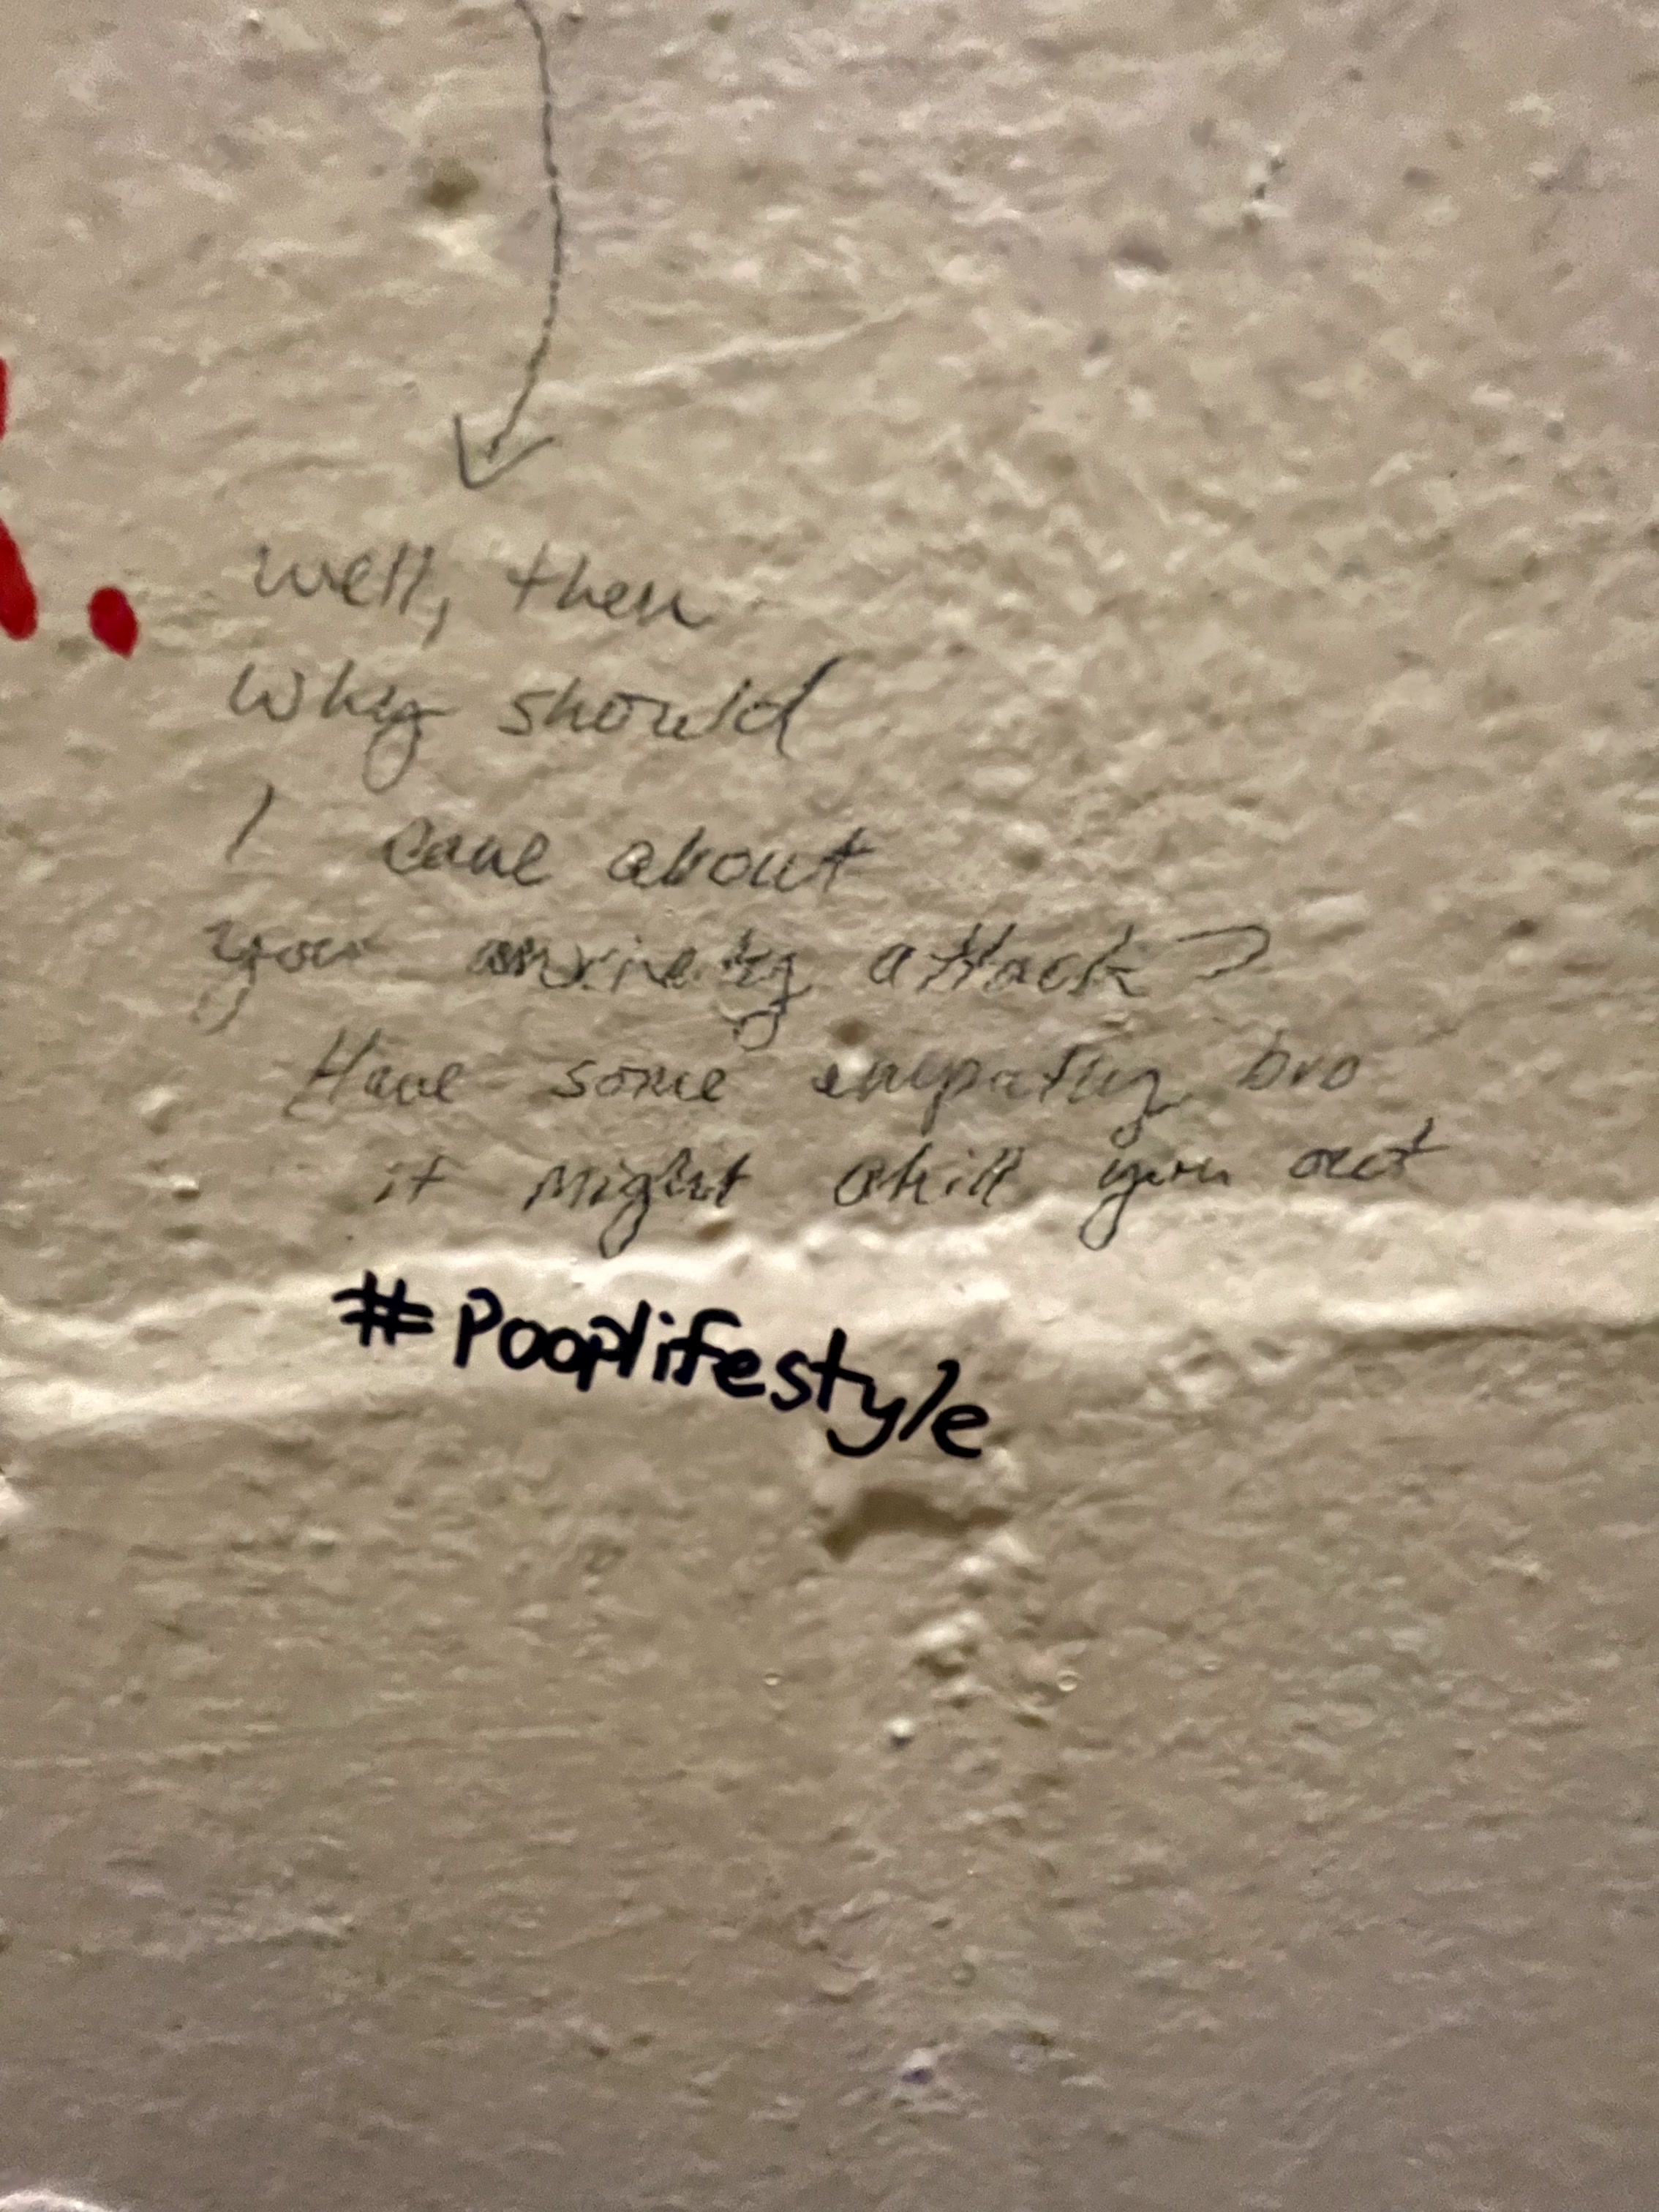 well, then
why should
I care about
your anxiety attack?
Have some empathy bro
it might chill you out
#Pooplifestyle